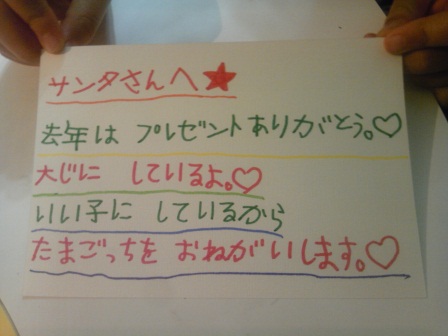 サンタさんへ★
去年は プレゼントありがとう。♡
大じに しているよ。♡
いい子に しているから
たまごっちを おねがいします。♡